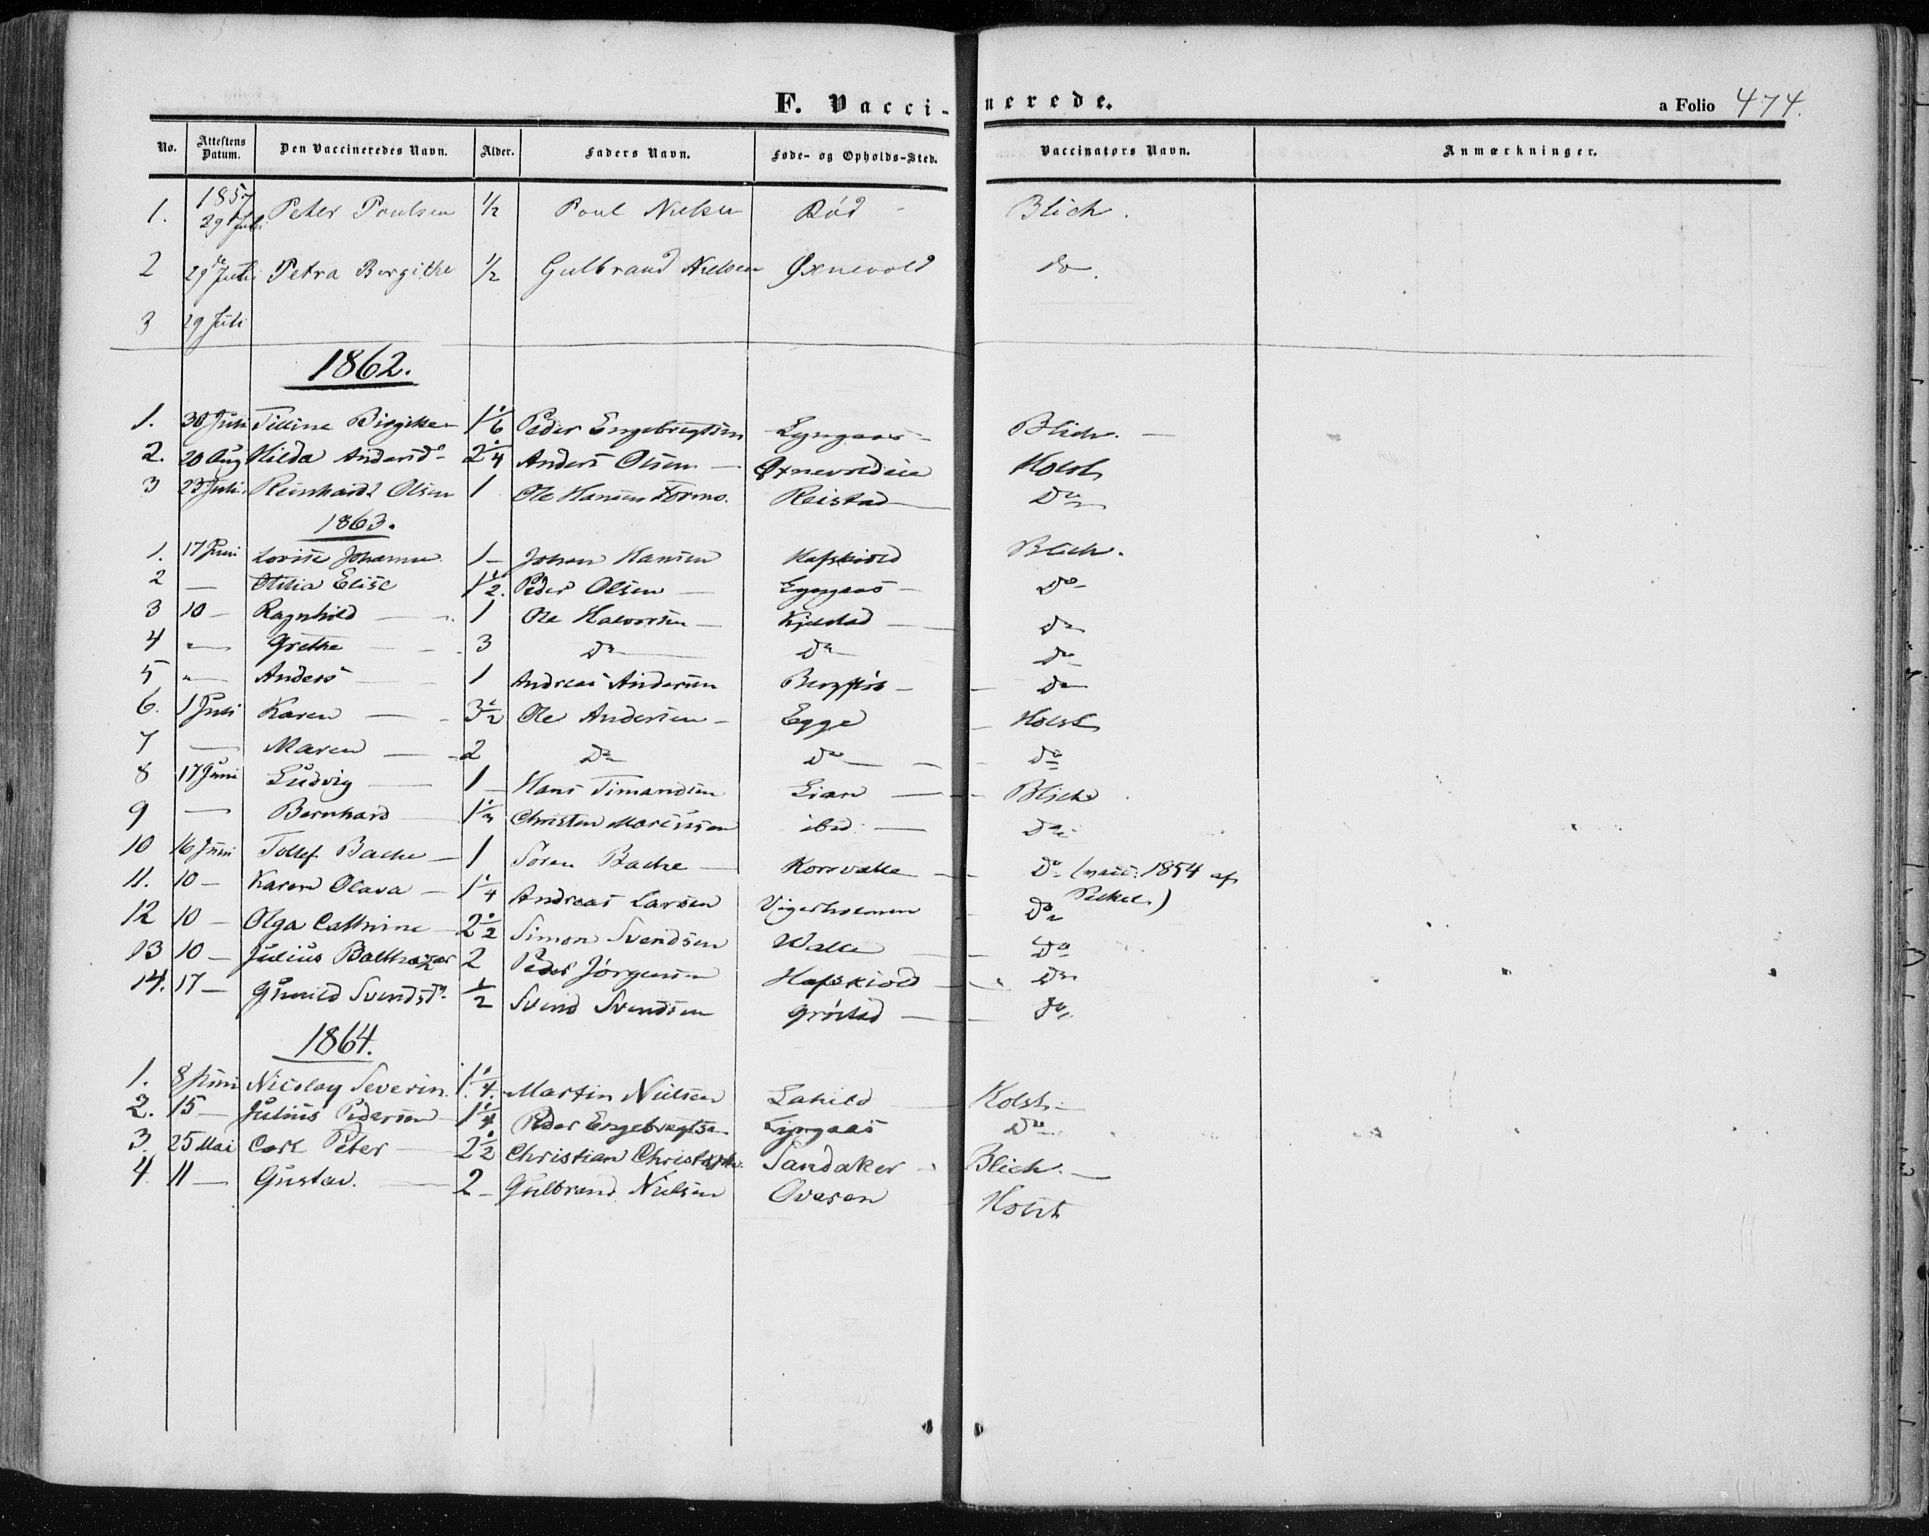 F. Vaccinerede. a Folio 474.
No. Attestens Datum. Den Vaccineredes Navn. Alder. Faders Navn. Føde- og Opholds-Sted. Vaccinators Navn. Anmærkninger.
1857
1. 29 Juli Peter Poulsen 1/2 Poul Nielsen Rød Blich.
2 29de Juli Petra Bergithe 1/2 Gulbrand Nielsen Øxnevold do.
3 29 Juli
1862.
1. 30 Juli Birgithe 1 1/6 Peder Engebregtsen Lyngaas Blich.
2. 20 Aug Hilda Andersd. 2 1/4 Anders Olsen Øxnevoldeie Holst
3 23 Juli Reinhardt Olsen 1 Ole Hansen Formo. Reistad Do
1863.
1. 17 Juni Lovise Johanne 1 Johan Hansen Hafskiold Blich.
2 — Otilia Elise 1 1/2. Peder Olsen Lyngaas Do
3 10 — Ragnhild 1 Ole Halvorsen Kjelstad Do
4 " — Grethe 3 Do Do Do
5 " — Anders 1 Andreas Andersen Do
6. 1 Juli Karen 3 1/2 Ole Andersen Egge Holst
7 — Maren 2 Do Do Do
8 17 Juni Ludvig 1 Hans Timandsen Lian Blich
9 — Bernhard 1 1/3 Christen Mariussen ibid. Do
10 16 Juni Tollef Bache 1 Søren Bache Korsvalle Do (vacc: 1854 af
11. 10 — Karen Olava 1 1/4 Andreas Larsen Vigerholmen Do
12 10 — Olga Cathrine 2 1/2 Simon Svendsen Walle Do
13 10 — Julius Balthazar 2 Peder Jørgensen Hafskiold Do
14. 17 — Gunild Svendsd. 1/2 Svend Svendsen Grøstad Do
1864.
1. 8 Juni Nicolay Severin 1 1/4. Martin Nielsen Lahild Holst
2. 15 — Julius Pedersen 1 1/4 Peder Engebregtsen Lyngaas Do
3. 25 Mai Carl Peter 2 1/2 Christian Christoph. Sandaker Blich.
4. 11 — Gustav. 2 Gulbrand Nielsen Ovesen Holst